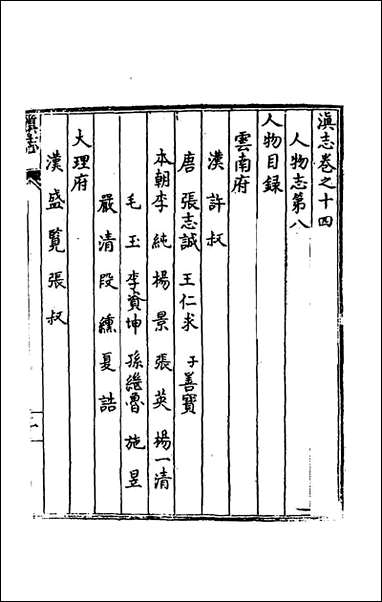 滇志卷之十四
人物志第八
人物目録
雲南府
漢許叔
唐張志誠 王仁求 子善寳
本朝李純 楊景 張英 楊一清
毛玉 李資坤 孫繼魯 施昱
嚴清 段纁 夏誥
大理府
漢盛覽 張叔
滇志